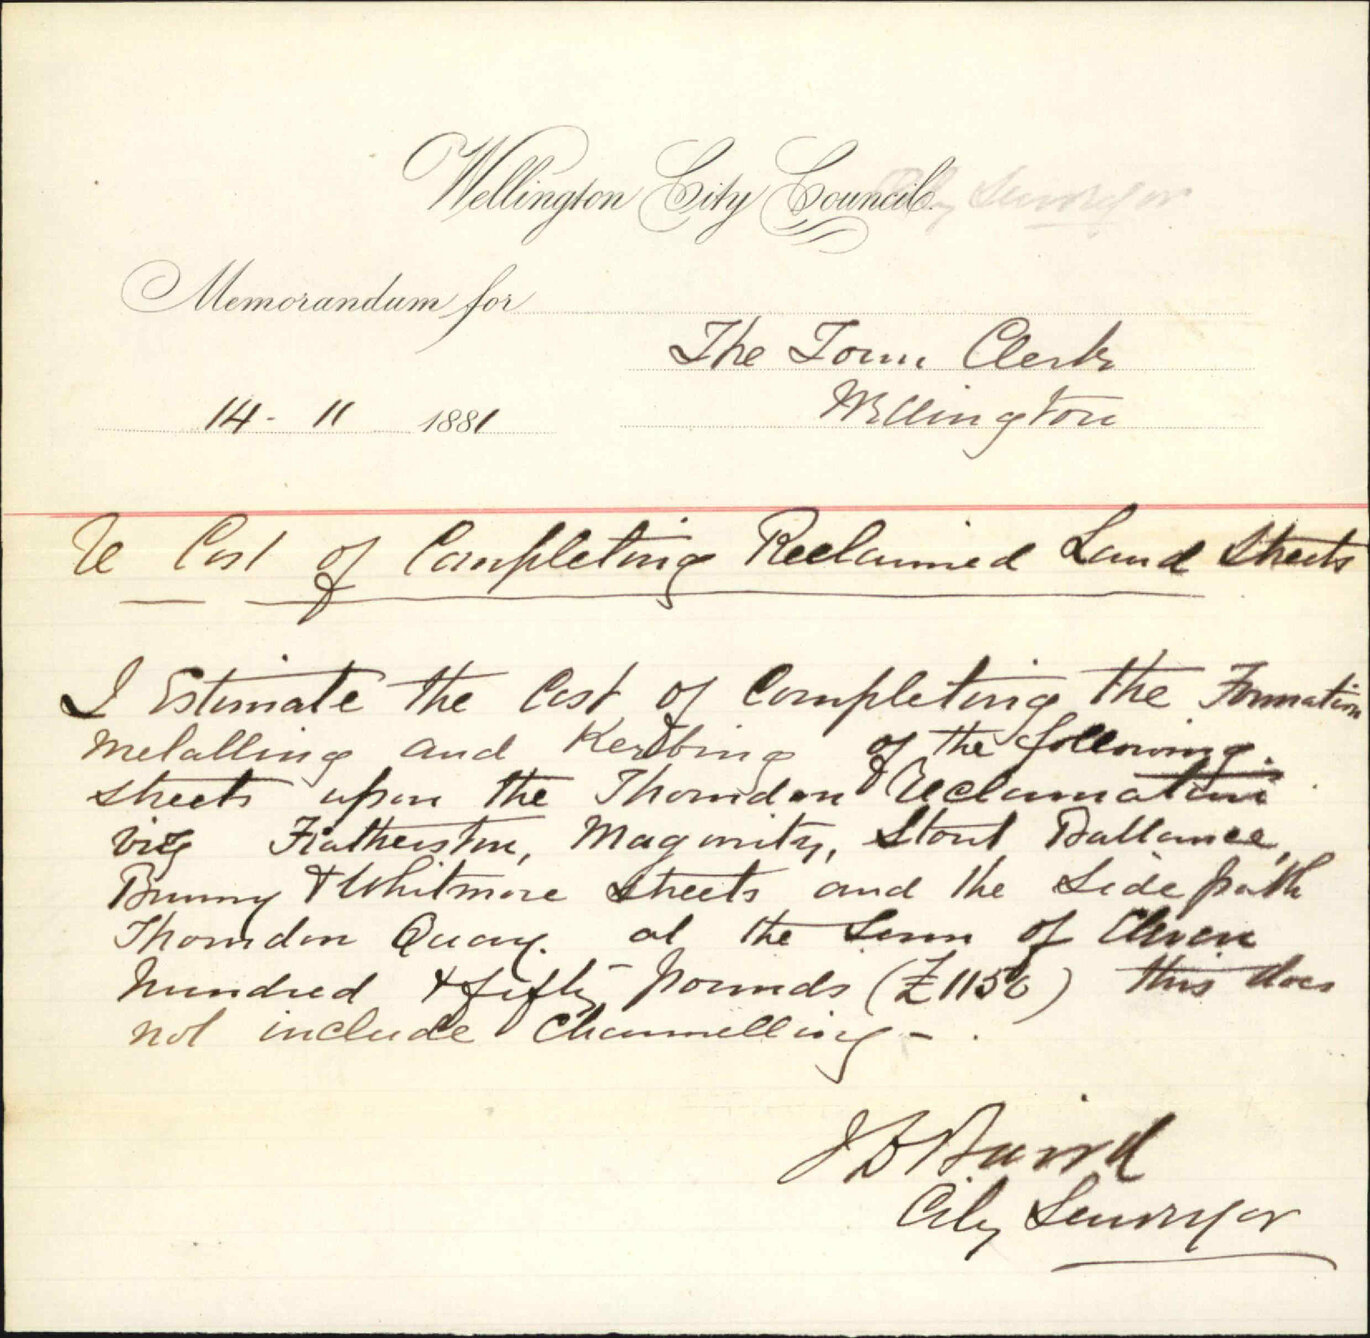 Wellington City Council.
Memorandum for
The Town Clerk
Wellington
14 - 11 1881
Re Cost of Completing Reclaimed Land Streets
I Estimate the Cost of Completing the Formation
Metalling and Kerbing of the following
streets upon the Thorndon Reclamation
viz Featherston, Maginnity, Stout Ballance,
Bunny & Whitmore Streets and the Side path
Thorndon Quay. at the Sum of Eleven
hundred & fifty pounds (£1150) this does
not include Channelling - .
J B Baird
City Surveyor